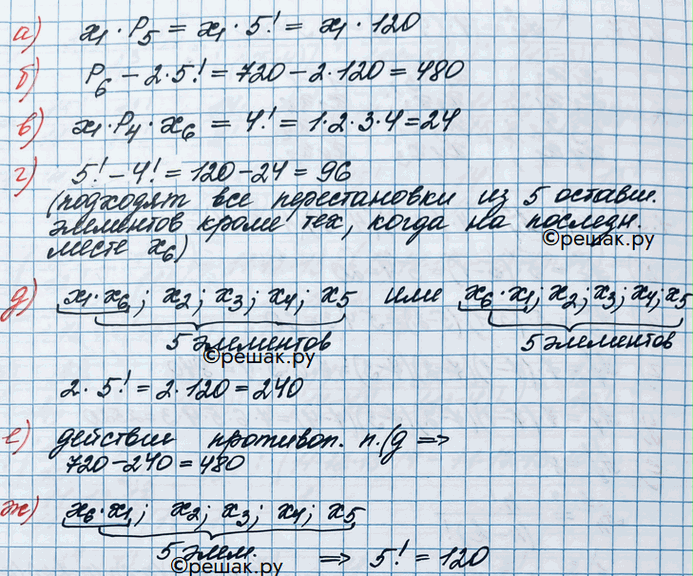 а) x₁ · P₅ = x₁ · 5! = x₁ · 120
б) P₆ − 2·5! = 720 − 2·120 = 480
в) x₁·P₄·x₆ = 4! = 1·2·3·4=24
г) 5! − 4! = 120 − 24 = 96
(подходят все перестановки из 5 оставш.
элементов кроме тех, когда на последн.
месте x₆)
©решак.ру
д) x₁·x₆; x₂; x₃; x₄; x₅ или x₆·x₁; x₂; x₃; x₄; x₅
5 элементов 5 элементов
©решак.ру
2·5! = 2·120 = 240
е) действие противоп. п.(д ⇒
720 − 240 = 480
ж) x₆·x₁; x₂; x₃; x₄; x₅
5 элем. ⇒ 5! = 120
©решак.ру